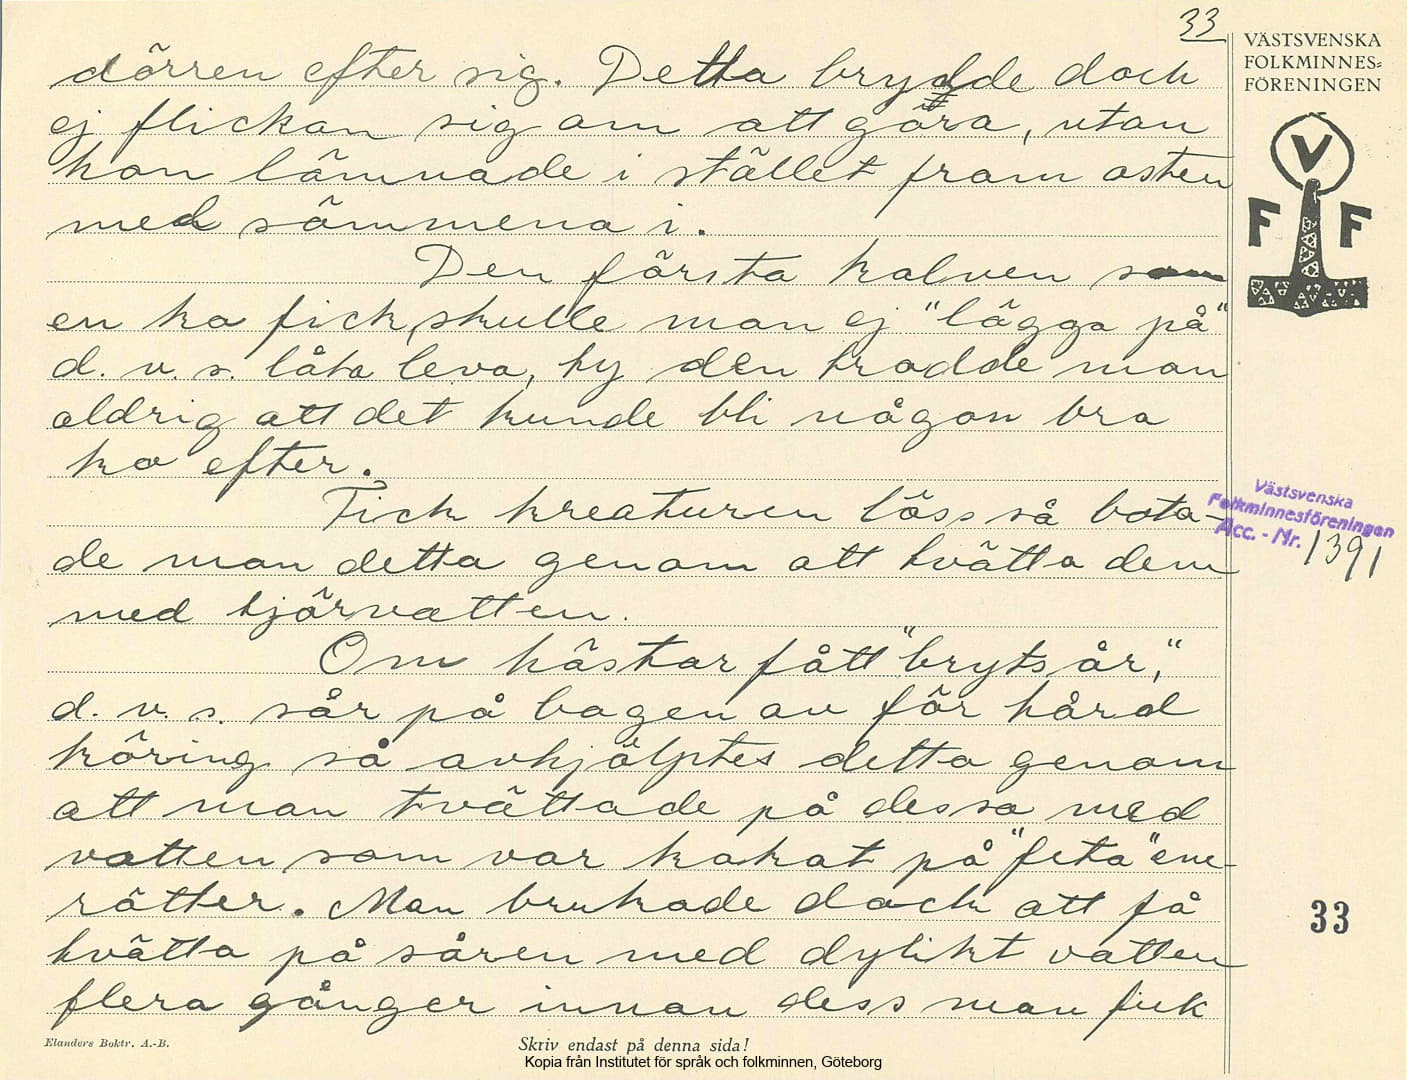 33
VÄSTSVENSKA
FOLKMINNES=
FÖRENINGEN
V
F F
dörren efter sig. Detta brydde dock
ej flickan sig om att göra, utan
hon lämnade i stället fram osten
med sömmena i.
Den första kalven som
en ko fick, skulle man ej "lägga på"
d. v. s. låta leva, ty den trodde man
aldrig att det kunde bli någon bra
ko efter.
Fick kreaturen löss så bota-
de man detta genom att tvätta dem
med tjärvatten.
Om hästar fått "brytsår,"
d. v. s. sår på bogen av för hård
köring så avhjälptes detta genom
att man tvättade på dessa med
vatten som var kokat på "feta" ene
rötter. Man brukade dock att få
tvätta på såren med dylikt vatten
flera gånger innan dess man fick
Västsvenska
Folkminnesföreningen
Acc. - Nr. 1391
33
Elanders Boktr. A.-B.
Skriv endast på denna sida!
Kopia från Institutet för språk och folkminnen, Göteborg